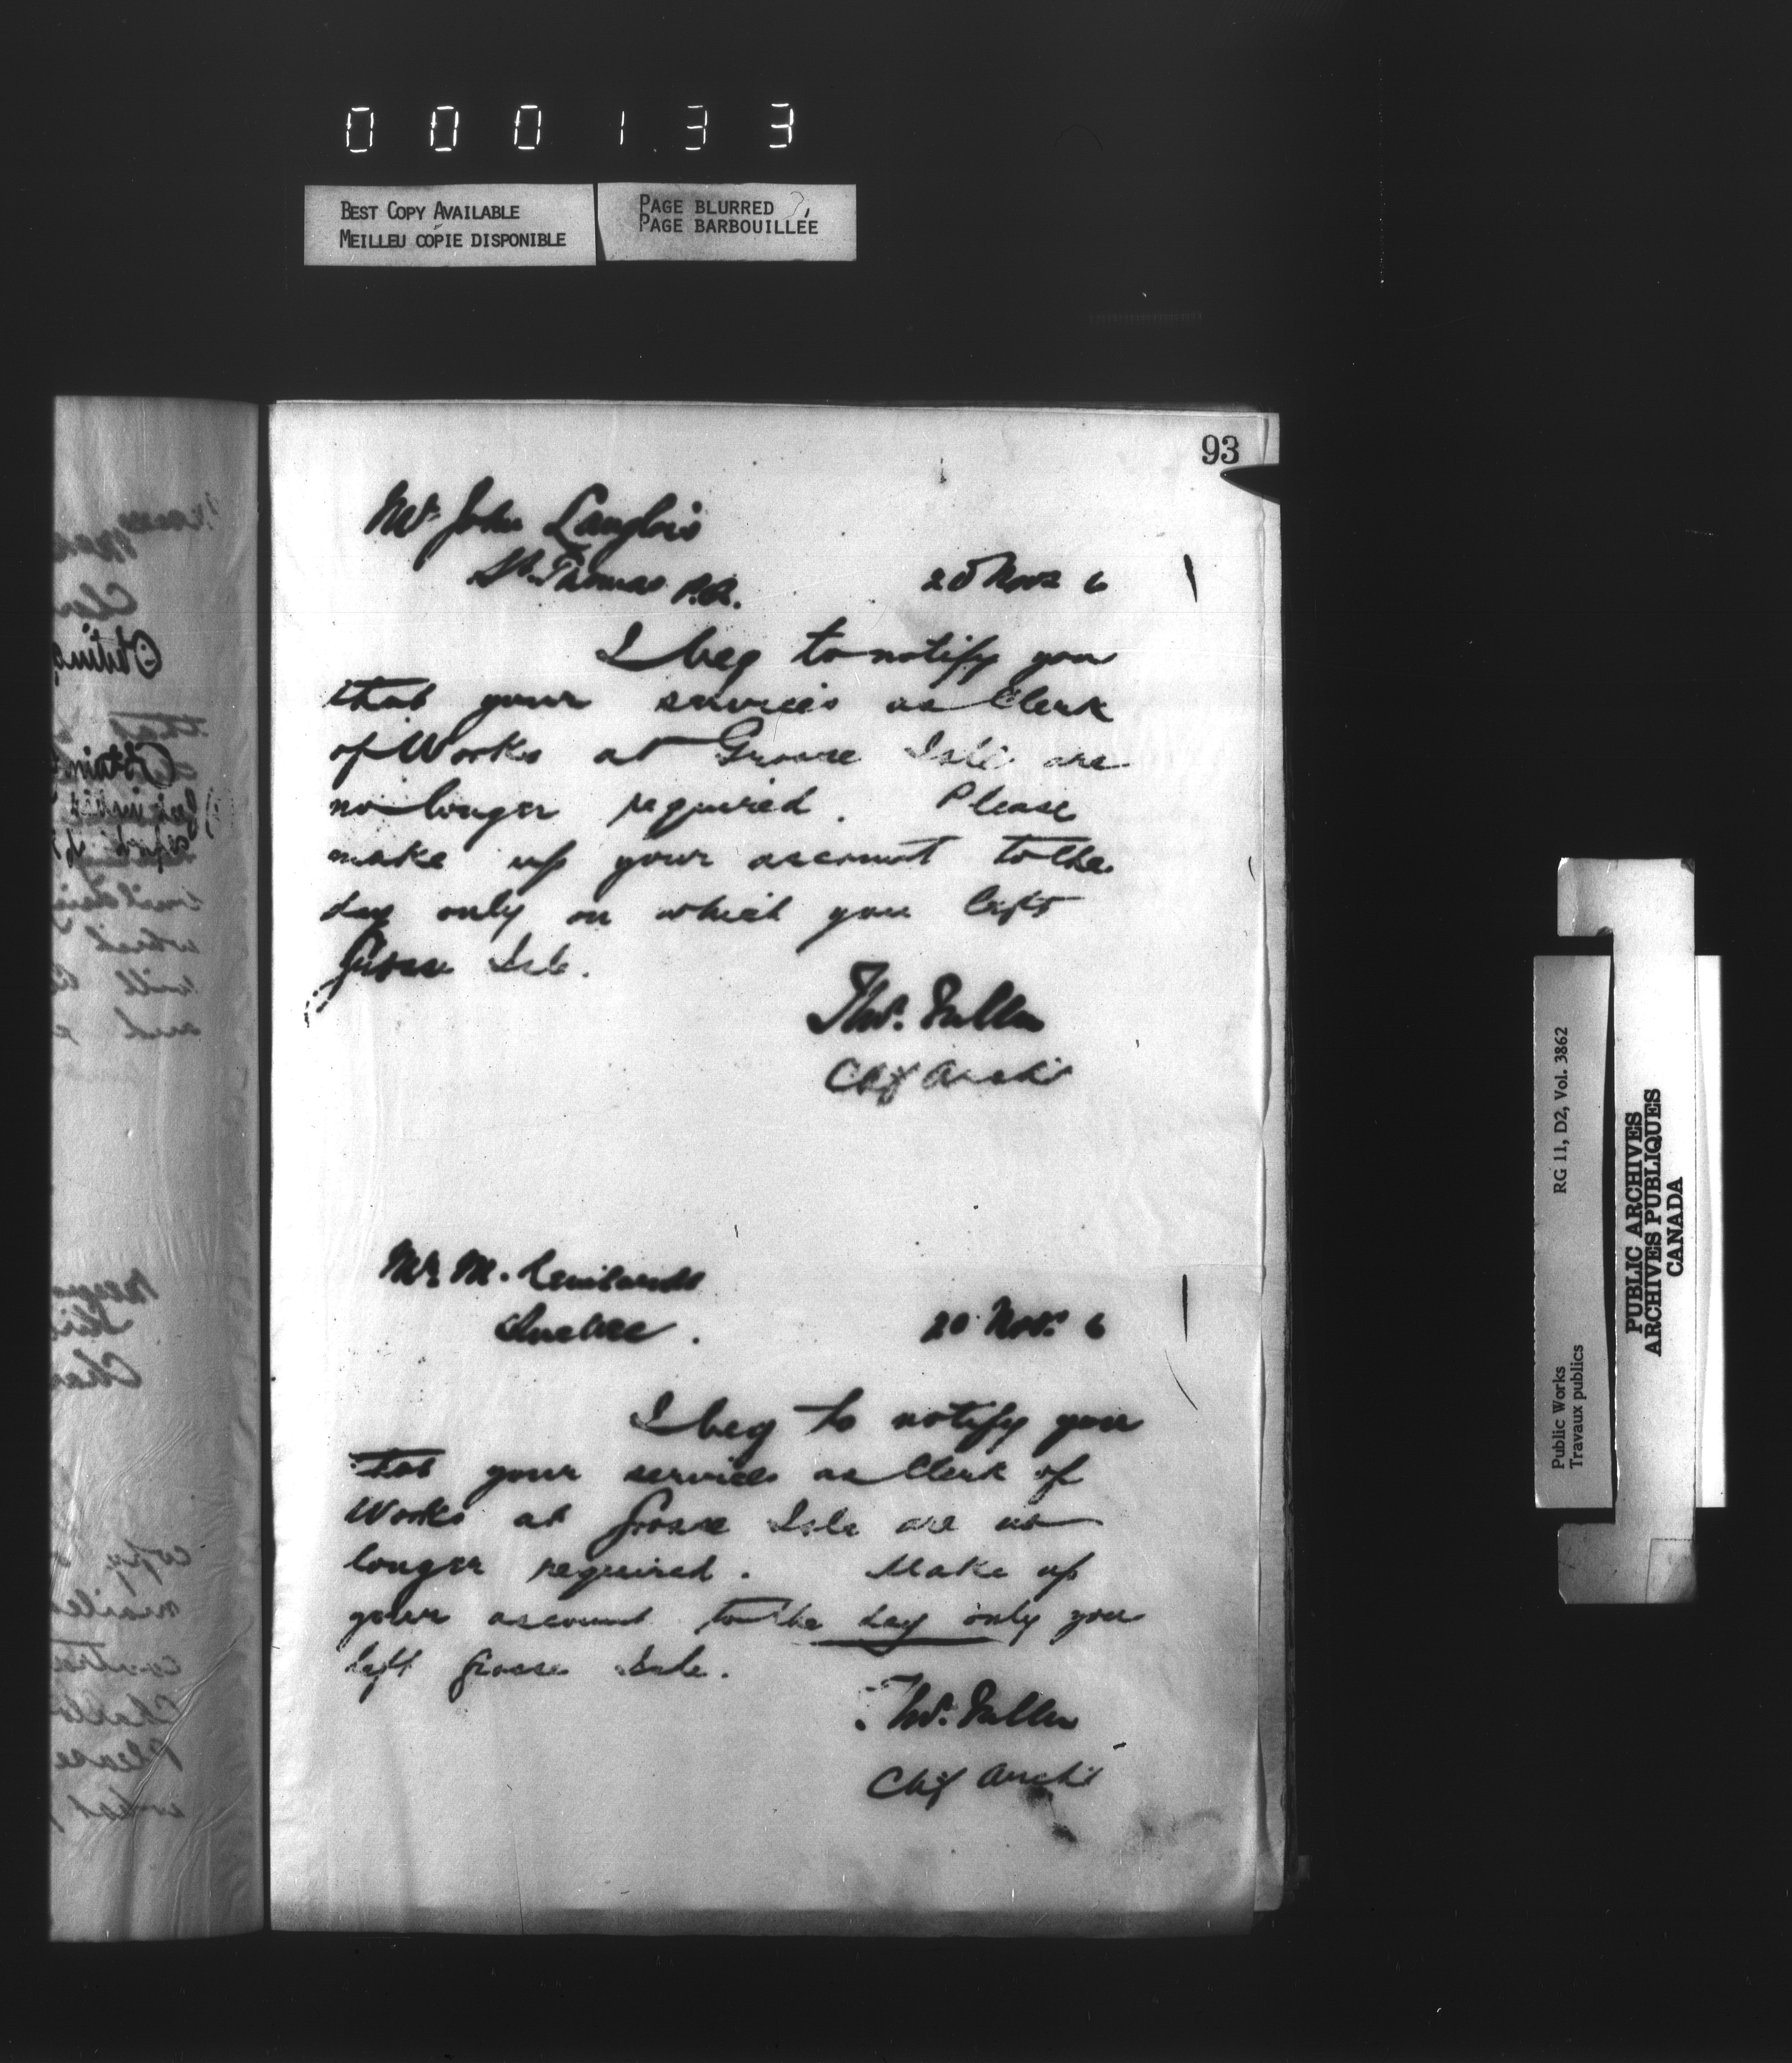 000133
BEST COPY AVAILABLE
MEILLEU COPIE DISPONIBLE
PAGE BLURRED
PAGE BARBOUILLÉE
93
Mr John Langlois
St. Thomas P.Q. 20 Novr 6
I beg to notify you
that your services as Clerk
of Works at Grosse Isle are
no longer required. Please
make up your account to the
day only on which you left
Grosse Isle.
Thos. Fuller
Chf Archt
Mr. M.
Quebec. 20 Novr. 6
I beg to notify you
that your services as Clerk of
Works at Grosse Isle are no
longer required. Make up
your account to the day only you
left Grosse Isle.
Thos. Fuller
Chf Archt
RG 11, D2, Vol. 3862
Public Works
Travaux publics
PUBLIC ARCHIVES
ARCHIVES PUBLIQUES
CANADA